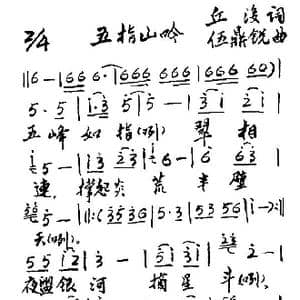 2/4 五指山吟 丘浚词
伍鼎锐曲
‖6 - | 666 6· | 666 666 | 666 60) |
5·5 | i·3 5 | 5 - | 3 i | 2 i |
五峰如指(咧) 翠相
5 - | i3 23 | i6 - | 6 63 |
连，撑起炎荒半壁
5 - |‖: 3536 | 5·3 | 53 56 | i - :‖
天(咧)。
55 i2 | 3 - | 5 i3 | 2 - |
夜盥银河 摘星斗(咧)。